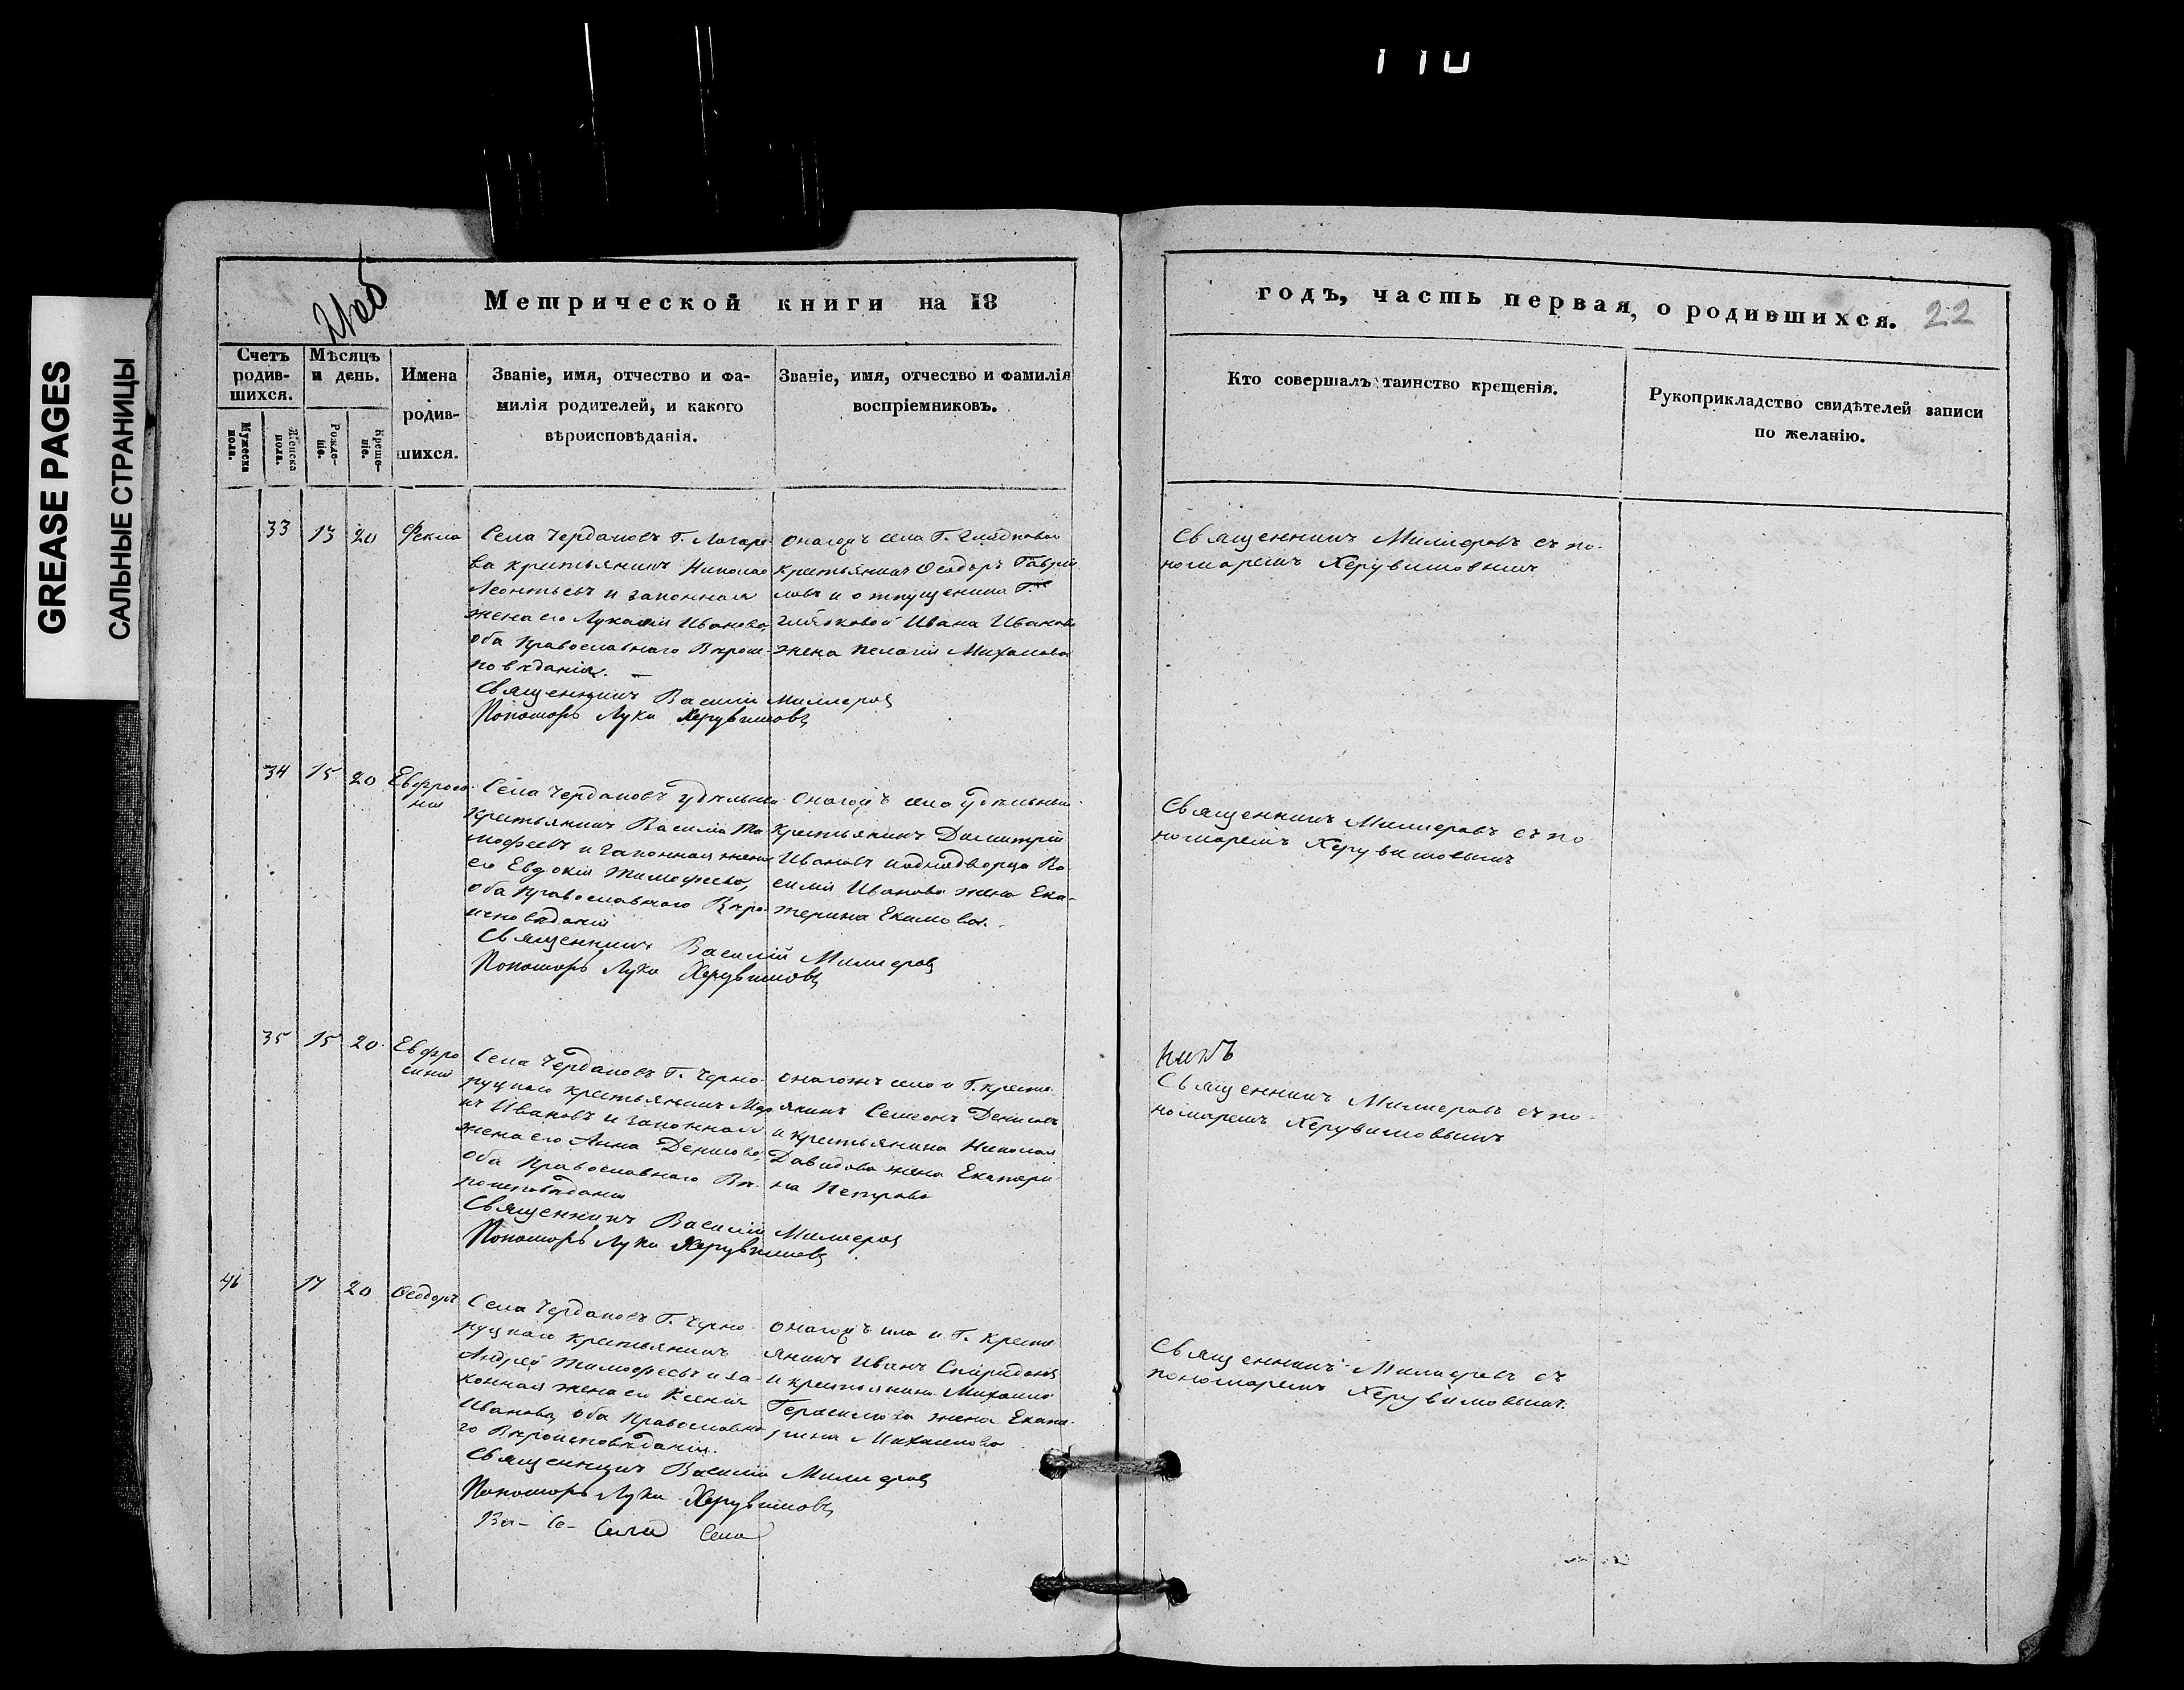 GREASE PAGES
САЛЬНЫЕ СТРАНИЦЫ
21 об
Метрической книги на 18
годъ, часть первая, о родившихся. 22
Счетъ родив-
шихся.
Мужеска пола.
Женска пола.
Мѣсяцъ и день.
Рожде-
ніе.
Креще-
ніе.
Имена
родив-
шихся.
Званіе, имя, отчество и фа-
милія родителей, и какого
вѣроисповѣданія.
Званіе, имя, отчество и фамилія
воспріемниковъ.
Кто совершалъ таинство крещенія.
Рукоприкладство свидѣтелей записи
по желанію.
33 13 20 Фекла
Села Чердаковъ Г.
ва крестьянинъ Николай
Леонтьевъ и законная
жена его Иванова,
оба Православнаго Вѣроис-
повѣданія.
Священникъ Василій Миллеровъ
Пономарь Лука Херувимовъ
онагожъ села Г.
Крестьянинъ Ѳеодоръ Гаври
ловъ и отпущенника Г.
Ивана Иванова
жена Пелагія Михайлова
Священникъ Миллеровъ съ по-
номаремъ Херувимовымъ
34 15 20 Евфроси
нія
Села Чердаковъ удѣльный
Крестьянинъ Василій Ти
мофеевъ и законная жена
его Евдокія Тимофеева,
оба Православнаго Вѣро-
исповѣданія
Священникъ Василій Миллеровъ
Пономарь Лука Херувимовъ
онагожъ села удѣльный
Крестьянинъ Димитрій
Ивановъ и однодворца Ва
силія Иванова жена Ека-
терина Екимова.
Священникъ Миллеровъ съ по
номаремъ Херувимовымъ
35 15 20 Евфро
синія
Села Чердаковъ Г. Черно-
руцкаго крестьянинъ
Ивановъ и законная
жена его Анна Денисова,
оба Православнаго Вѣ-
роисповѣданія
Священникъ Василій Миллеровъ
Пономарь Лука Херувимовъ
онагожъ села и Г. крестья
янинъ Семеонъ Денисовъ
и крестьянина Николая
Давидова жена Екатери
на Петрова
Священникъ Миллеровъ съ по-
номаремъ Херувимовымъ
46 17 20 Ѳеодоръ
Села Чердаковъ Г. Черно-
руцкаго крестьянинъ
Андрей Тимофеевъ и за-
конная жена его Ксенія
Иванова, оба Православна
го Вѣроисповѣданія.
Священникъ Василій Миллеровъ
Пономарь Лука Херувимовъ
онагожъ села и Г. Крестья
янинъ Иванъ Спиридоновъ
и крестьянина Михаила
Герасимова жена Екате-
рина Михайлова
Священникъ Миллеровъ съ
пономаремъ Херувимовымъ.
Села